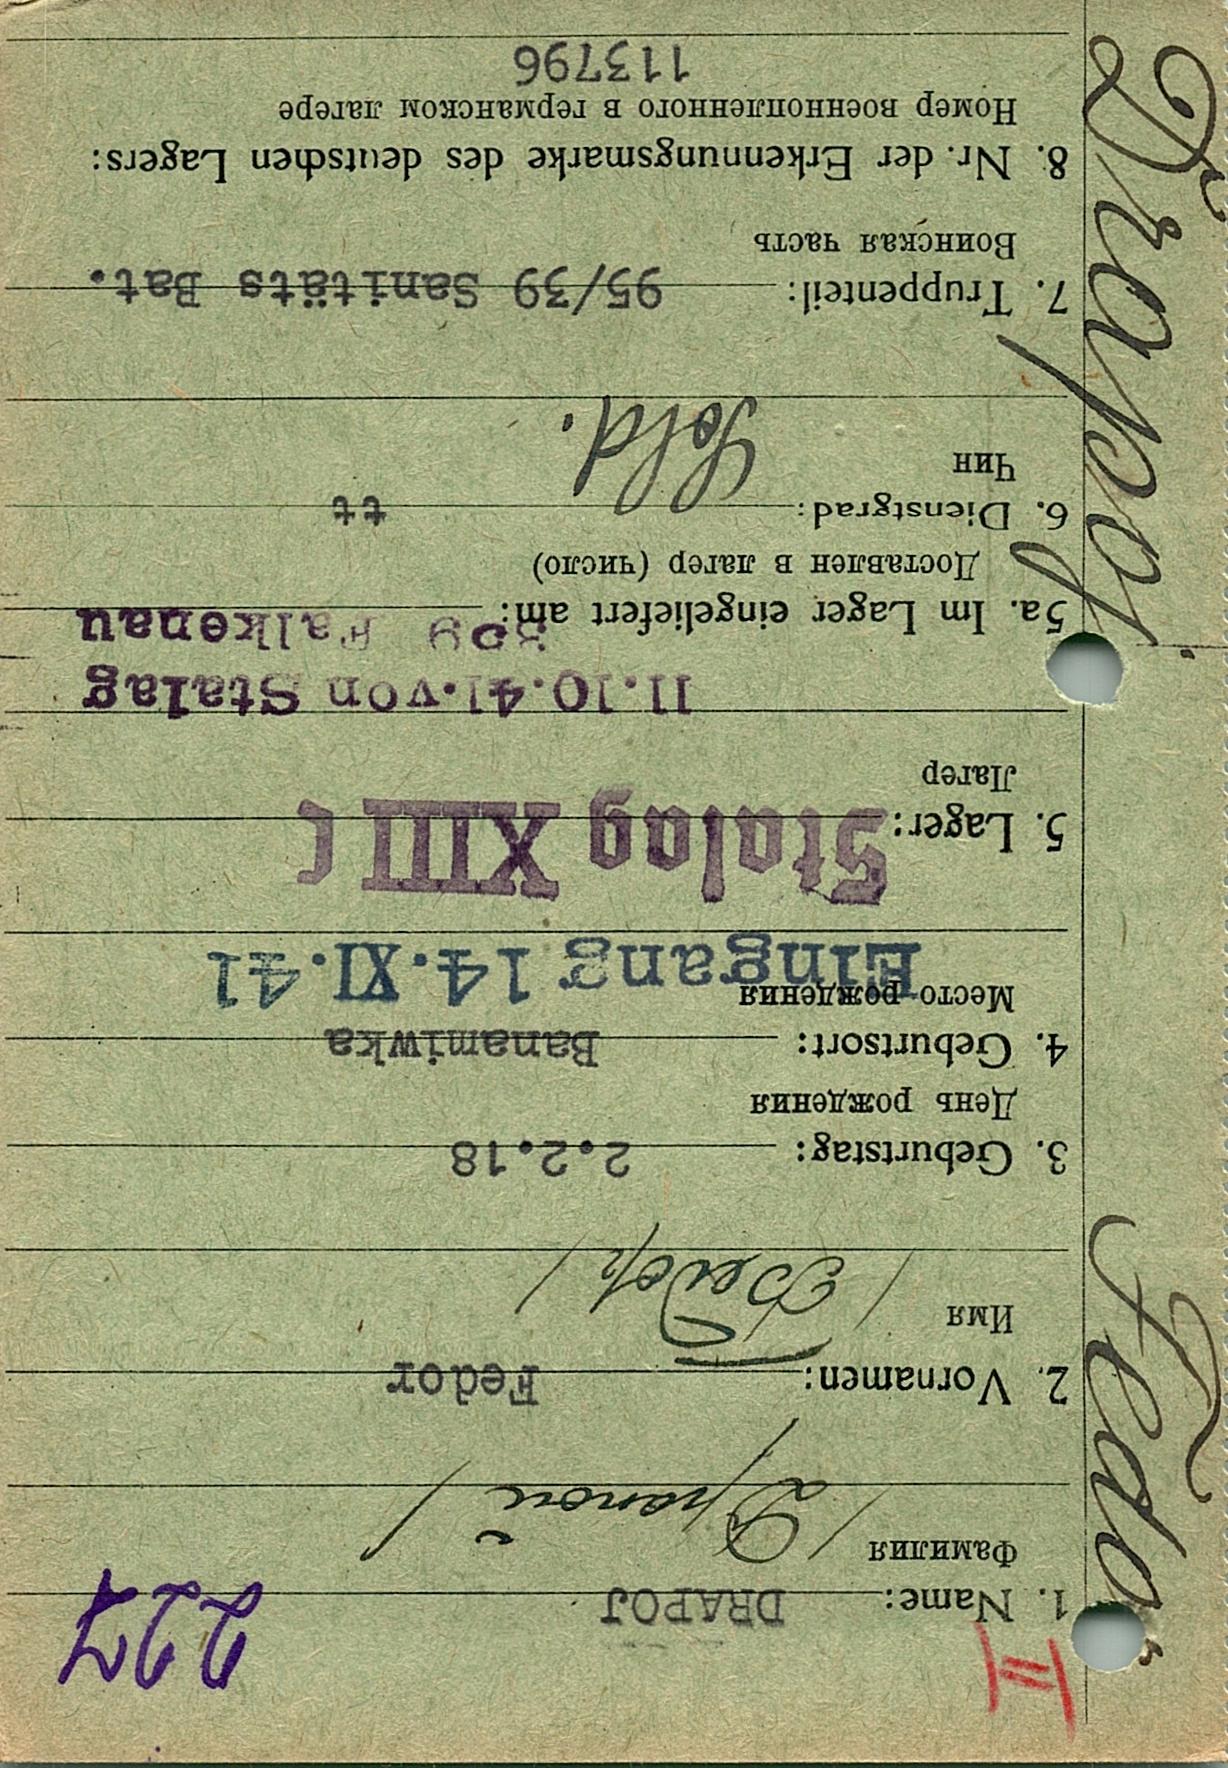 Drapoj Fedor
H
227
1. Name: DRAPOJ
Фамилия /Драпой/
2. Vornamen: Fedor
Имя /Федор/
3. Geburtstag: 2.2.18
День рождения
4. Geburtsort: Banamiwka
Место рождения
Eingang 14.XI.41
5. Lager: Stalag XIII C
Лагер
11.10.41.von Stalag
5a. Im Lager eingeliefert am: 359 Falkenau
Доставлен в лагер (число)
6. Dienstgrad: tt
Чин Sold.
7. Truppenteil: 95/39 Sanitäts Bat.
Воинская часть
8. Nr. der Erkennungsmarke des deutschen Lagers:
Номер военнопленного в германском лагере
113796